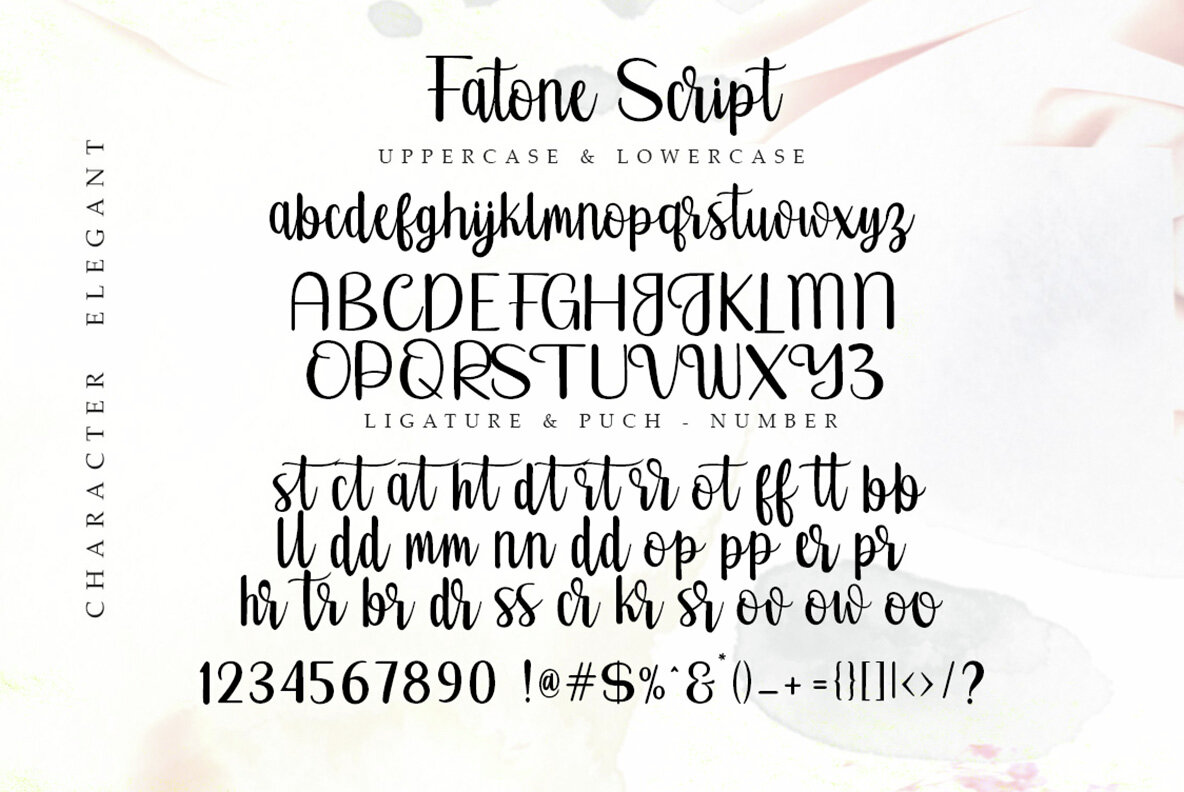 Fatone Script
UPPERCASE & LOWERCASE
abcdefghijklmnopqrstuvwxyz
ABCDEFGHIJKLMN
OPQRSTUVWXYZ
LIGATURE & PUCH - NUMBER
st ct at ht dt rt rr ot ff tt bb
ll dd mm nn dd op pp er pr
hr tr br dr ss cr kr sr ov ow oo
1234567890 !@#$%^&*()_+={}[]|<>/?
CHARACTER ELEGANT